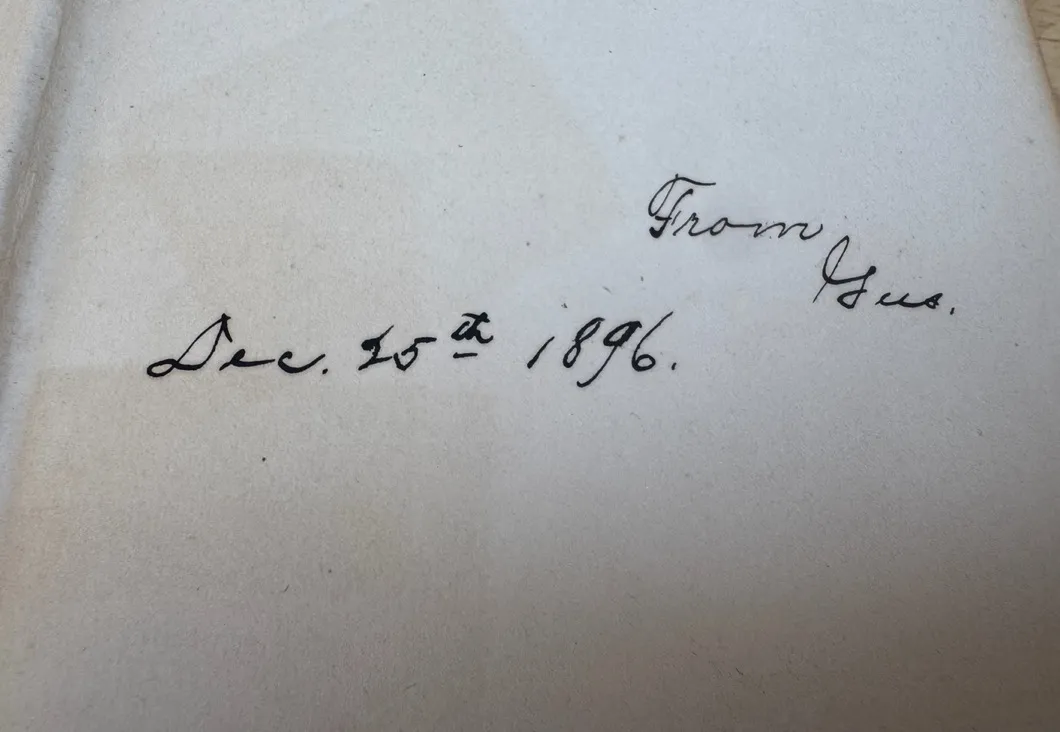 From
Gus.
Dec. 25th 1896.